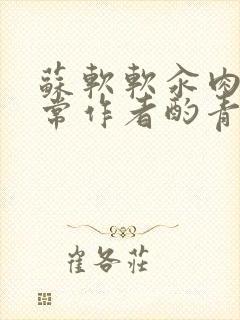 蘇軟軟汆肉
常作者酌青
崔各莊